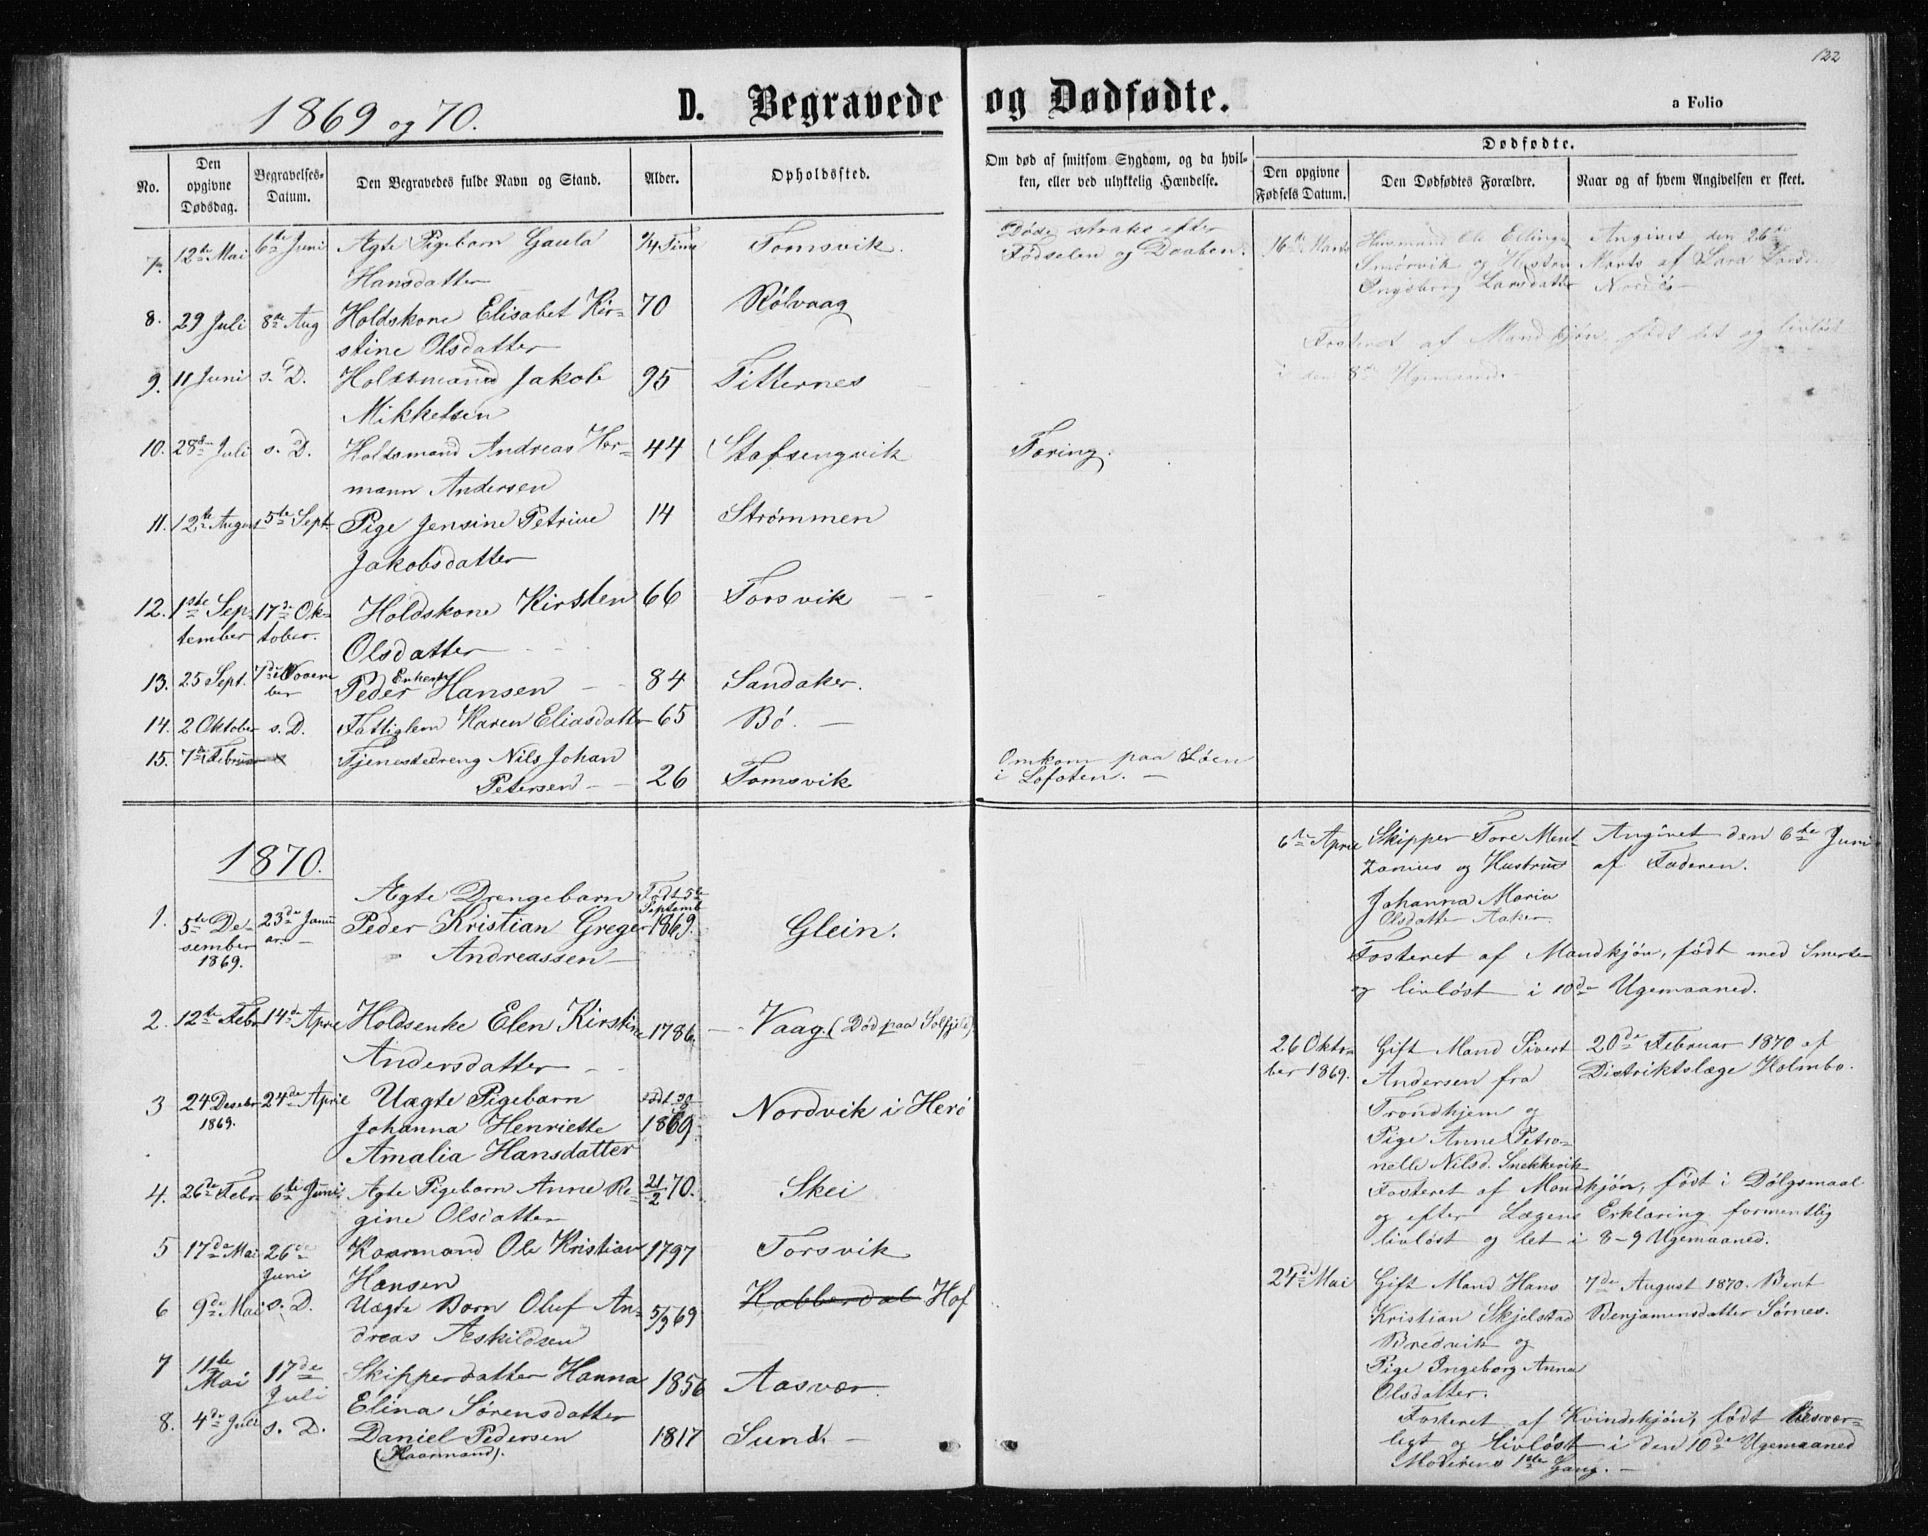 122
1869 og 70.
D. Begravede og Dødfødte.
a Folio
No.
Den opgivne Dødsdag.
Begravelses-Datum.
Den Begravedes fulde Navn og Stand.
Alder.
Opholdssted.
Om død af smitsom Sygdom, og da hvil-
ken, eller ved ulykkelig Hændelse.
Dødfødte.
Den opgivne Fødsels Datum.
Den Dødfødtes Forældre.
Naar og af hvem Angivelsen er skeet.
7. 12te Mai 6te Juni Ægte Pigebarn Gaula Tomsvik.
Hansdatter
Døde straks efter
Fødselen og Daaben.
8. 29 Juli 8de Aug Holdskone Elisabet Kir- 70 Rølvaag
stine Olsdatter
9. 11 Juni s. D. Holdsmand Jakob 95 Titternes
Mikkelsen
10. 28de Juli s. D. Holdsmand Andreas Her- 44 Stafsengvik Tæring.
mann Andersen
11. 12te August 5te Sept. Pige Jensine Petrine 14 Strømmen
Jakobsdatter
12. 1ste Sep- 17de Ok- Holdskone Kirsten 66 Forsvik
tember tober. Olsdatter
13. 25 Sept. 7de Novem- Enkem. 84 Sandaker.
ber Peder Hansen
14. 2 Oktober s. D. Fattiglem Karen Eliasdatter 65 Bø.
15. 7de Februar Tjenestedreng Nils Johan
Petersen 26 Tomsvik
Omkom paa Søen
i Lofoten.
16de Marts Husmand Ole Ellings Angives den 26de
Smørvik og Hustru Marts af Sara
Ingeborg Larsdatter Nordøs
Fosteret af Mandkjøn, født let og livløst
i den 8de Ugemaaned.
1870.
1. 5te De- 23de Janu- Ægte Drengebarn Født 5te
sember ar. Peder Kristian Greger Septemb Glein.
1869. Andreassen 1869.
2. 12te Febr 14de April Holdsenke Elen Kirstine 1786. Vaag. (Død paa Solfjeld)
Andersdatter
3 24 Desebr 24de April Uægte Pigebarn Nordvik i Herø
1869. Johanna Henriette 1869
Amalia Hansdatter
4. 26de Febr 6te Juni Ægte Pigebarn Anne Re- 21/2 70. Skei
gine Olsdatter
5 17de Mai 26de Kaarmand Ole Kristian 1797 Forsvik
Juni Hansen
6 9de Mai s. D. Uægte Barn Oluf An- 5/3 69 Kobberdal Hof
dreas Aeskildsen
7 11te 17de Skipperdatter Hanna 1856 Aasvær
Mai Juli Elina Sørensdatter
8. 4de Juli s. D. Daniel Pedersen 1817 Sund.
(Kaarmand).
6te April Skipper Tore Ment- Angivet den 6te Juni
zonius og Hustrus af Faderen.
Johanna Maria
Olsdatter Aaker
Fosteret af Mandkjøn, født med Smerte
og livløst i 10de Ugemaaned.
26 Okto- Gift Mand Sivert 20de Februar 1870 af
ber 1869. Andersen fra Distriktslæge Holmbo.
Trondhjem og
Pige Anne Petro-
nelle Nilsd. Snekkevik
Fosteret af Mandkjøn, født i Dølgsmaal
og efter Lægens Erklæring formentlig
livløst og let i 8-9 Ugemaaned.
24de Mai Gift Mand Hans 7de August 1870. Bent
Kristian Skjelstad Benjaminsdatter Sørnes.
Bredvik og
Pige Ingeborg Anna
Olsdatter.
Fosteret af Kvindekjøn, født besvær-
ligt og livløst i den 10de Ugemaaned
Moderens 1ste Gang.